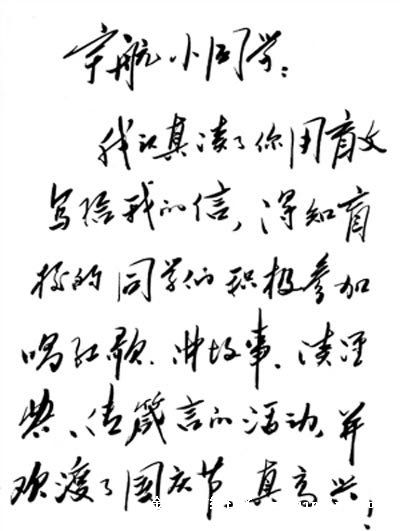 宇航小同学：
我认真读了你用盲文
写给我的信，得知盲
校的同学们积极参加
唱红歌、讲故事、读经
典、传箴言的活动，并
欢渡了国庆节，真高兴，